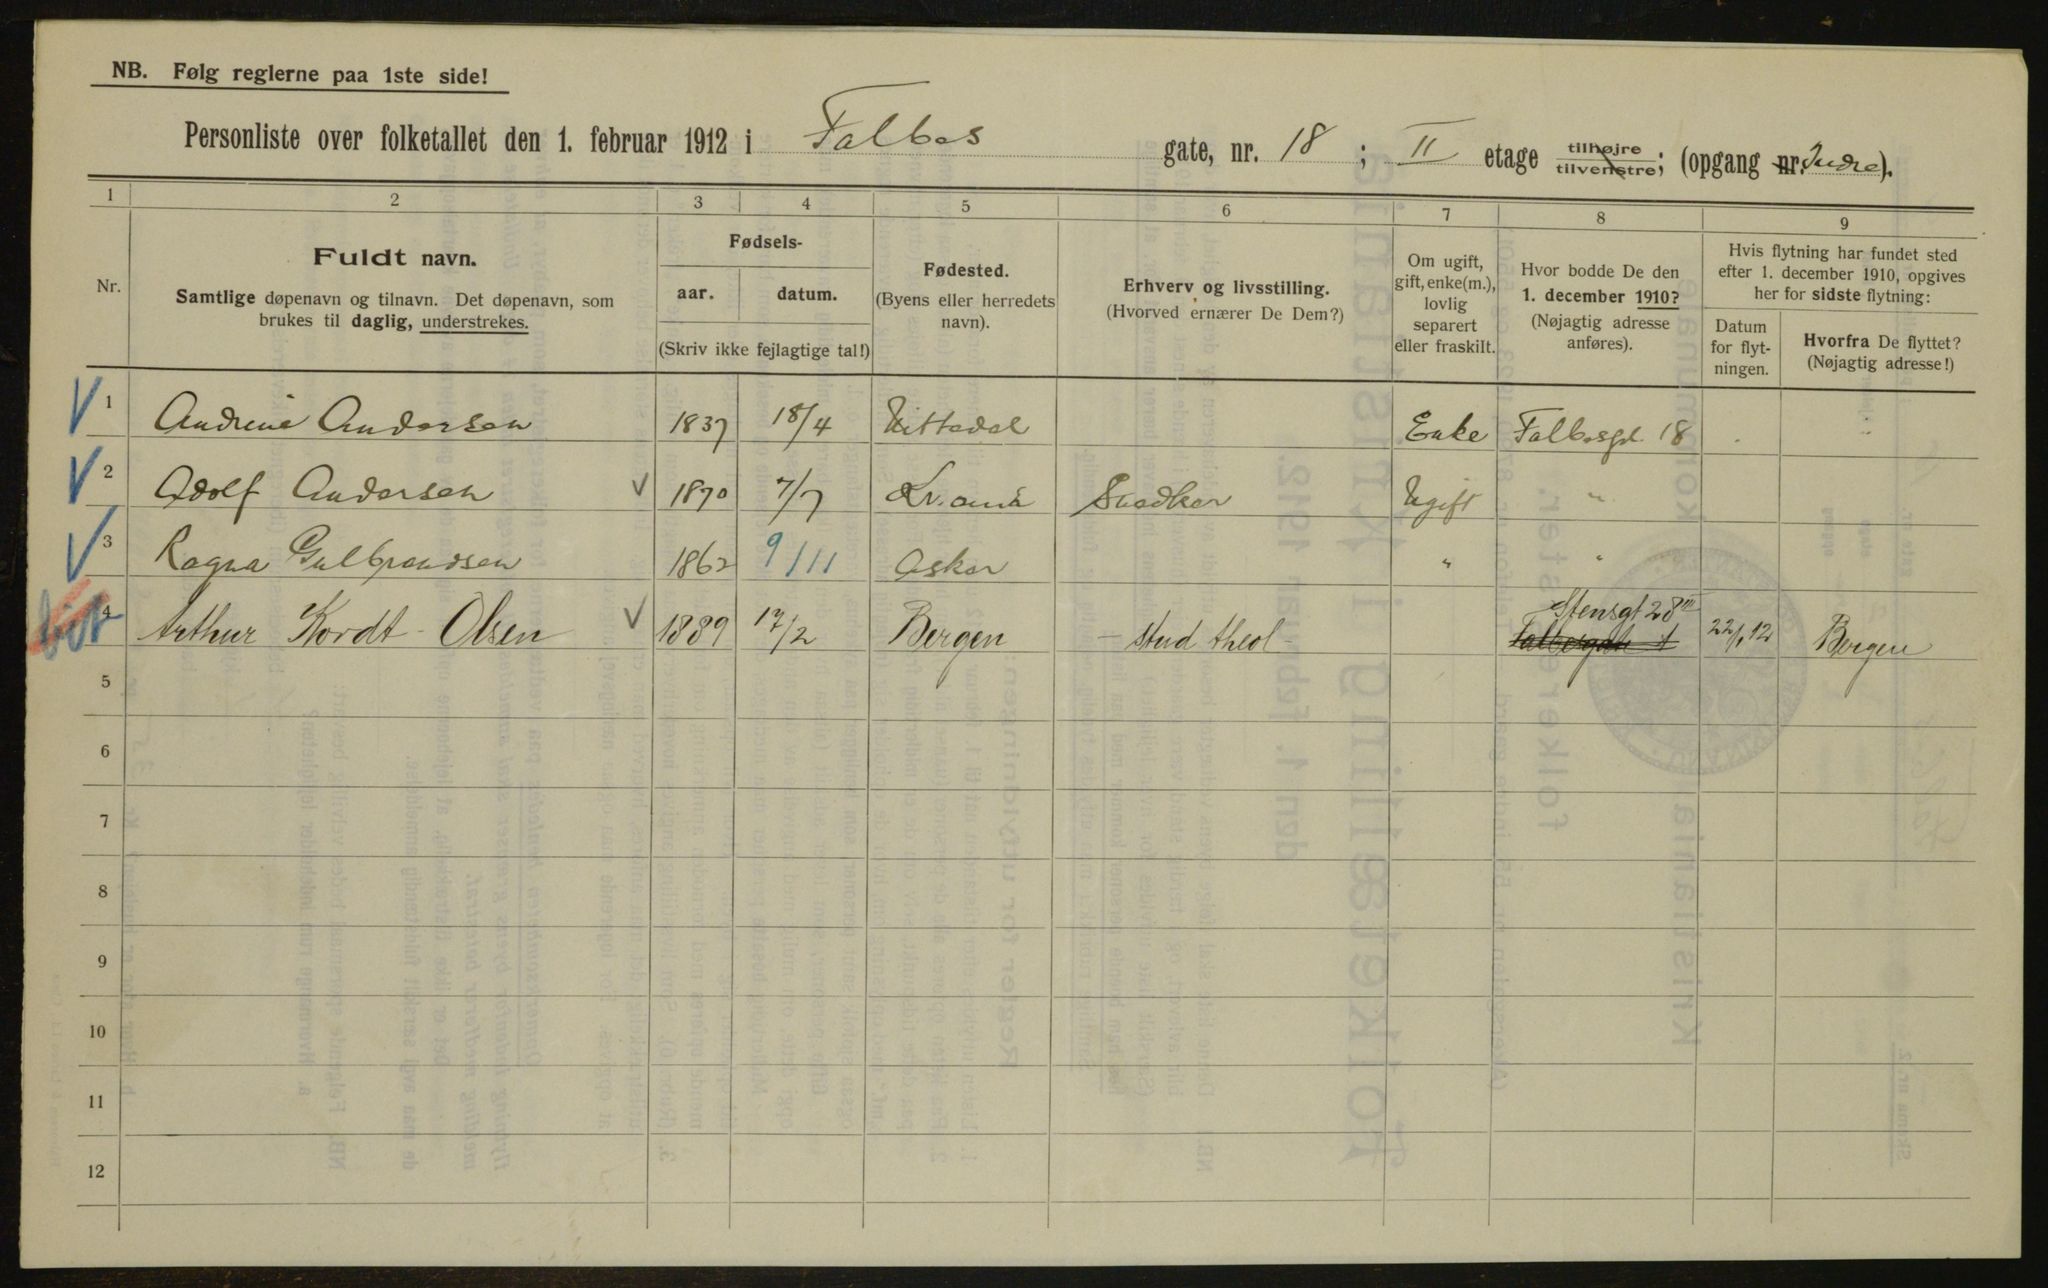 NB. Følg reglerne paa 1ste side!
Personliste over folketallet den 1. februar 1912 i Falbes gate, nr. 18 ; II etage tilhøjre tilvenstre; (opgang nr. Indre).
1 2 3 4 5 6 7 8 9
Nr.
Fuldt navn.
Samtlige døpenavn og tilnavn. Det døpenavn, som
brukes til daglig, understrekes.
Fødsels-
aar. datum.
(Skriv ikke fejlagtige tal!)
Fødested.
(Byens eller herredets
navn).
Erhverv og livsstilling.
(Hvorved ernærer De Dem?)
Om ugift,
gift, enke(m.),
lovlig
separert
eller fraskilt.
Hvor bodde De den
1. december 1910?
(Nøjagtig adresse
anføres).
Hvis flytning har fundet sted
efter 1. december 1910, opgives
her for sidste flytning:
Datum
for flyt-
ningen.
Hvorfra De flyttet?
(Nøjagtig adresse!)
1 Andrine Andersen 1837 18/4 Nittedal Enke Falbesgd. 18
2 Adolf Andersen 1870 7/7 Kr.ania Snedker Ugift "
3 Ragna Gulbrandsen 1862 9/11 Asker " "
4 Arthur Kordt-Olsen 1889 17/2 Bergen - stud theol - Stensgt 28 III 22/1 12 Bergen
5
6
7
8
9
10
11
12